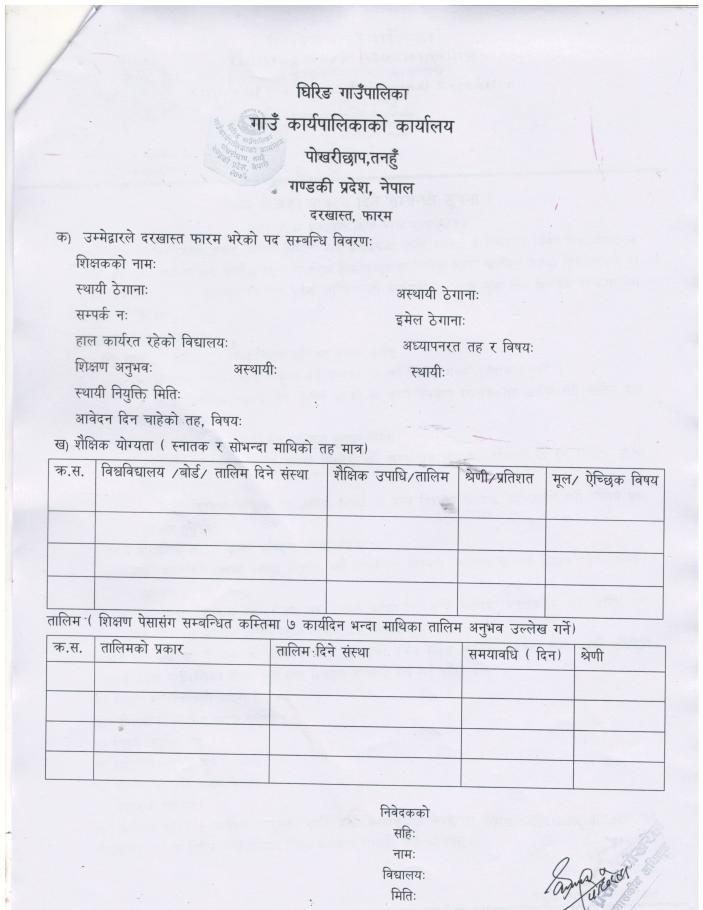 घिरिङ गाउँपालिका
गाउँ कार्यपालिकाको कार्यालय
पोखरीछाप,तनहुँ
गण्डकी प्रदेश, नेपाल
दरखास्त, फारम
क) उम्मेद्वारले दरखास्त फारम भरेको पद सम्बन्धि विवरणः
शिक्षकको नामः
स्थायी ठेगानाः अस्थायी ठेगानाः
सम्पर्क नः इमेल ठेगानाः
हाल कार्यरत रहेको विद्यालयः अध्यापनरत तह र विषयः
शिक्षण अनुभवः अस्थायीः स्थायीः
स्थायी नियुक्ति मितिः
आवेदन दिन चाहेको तह, विषयः
ख) शैक्षिक योग्यता ( स्नातक र सोभन्दा माथिको तह मात्र)
क्र.स. विश्वविद्यालय /बोर्ड/ तालिम दिने संस्था शैक्षिक उपाधि/तालिम श्रेणी/प्रतिशत मूल/ ऐच्छिक विषय
तालिम ( शिक्षण पेसासंग सम्बन्धित कम्तिमा ७ कार्यदिन भन्दा माथिका तालिम अनुभव उल्लेख गर्ने)
क्र.स. तालिमको प्रकार तालिम दिने संस्था समयावधि ( दिन) श्रेणी
निवेदकको
सहिः
नामः
विद्यालयः
मितिः